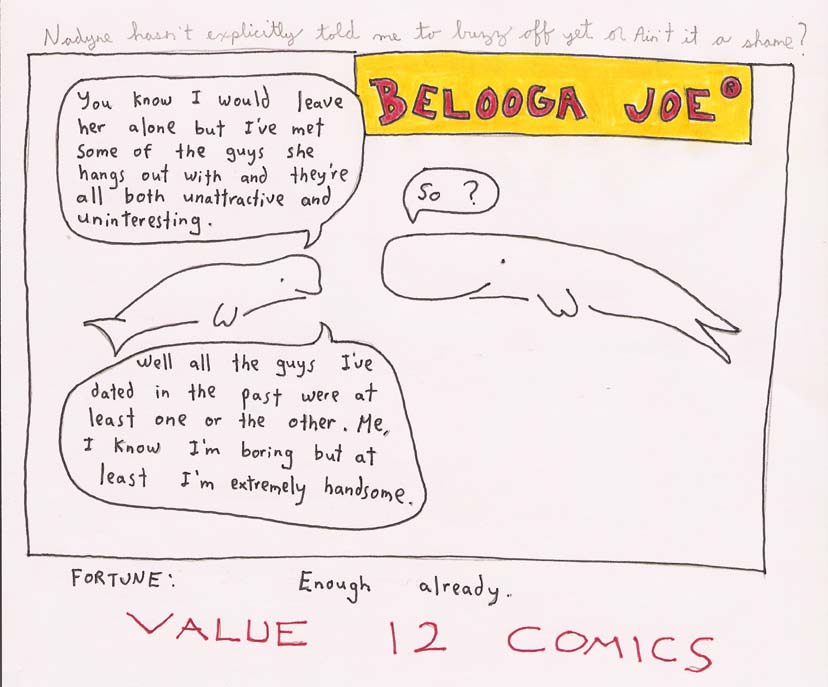 Nadyne hasn't explicitly told me to buzz off yet or Ain't it a shame?
BELOOGA JOE®
You know I would leave
her alone but I've met
Some of the guys she
hangs out with and they're
all both unattractive and
uninteresting.
So ?
Well all the guys I've
dated in the past were at
least one or the other. Me,
I know I'm boring but at
least I'm extremely handsome.
FORTUNE: Enough already.
VALUE 12 COMICS